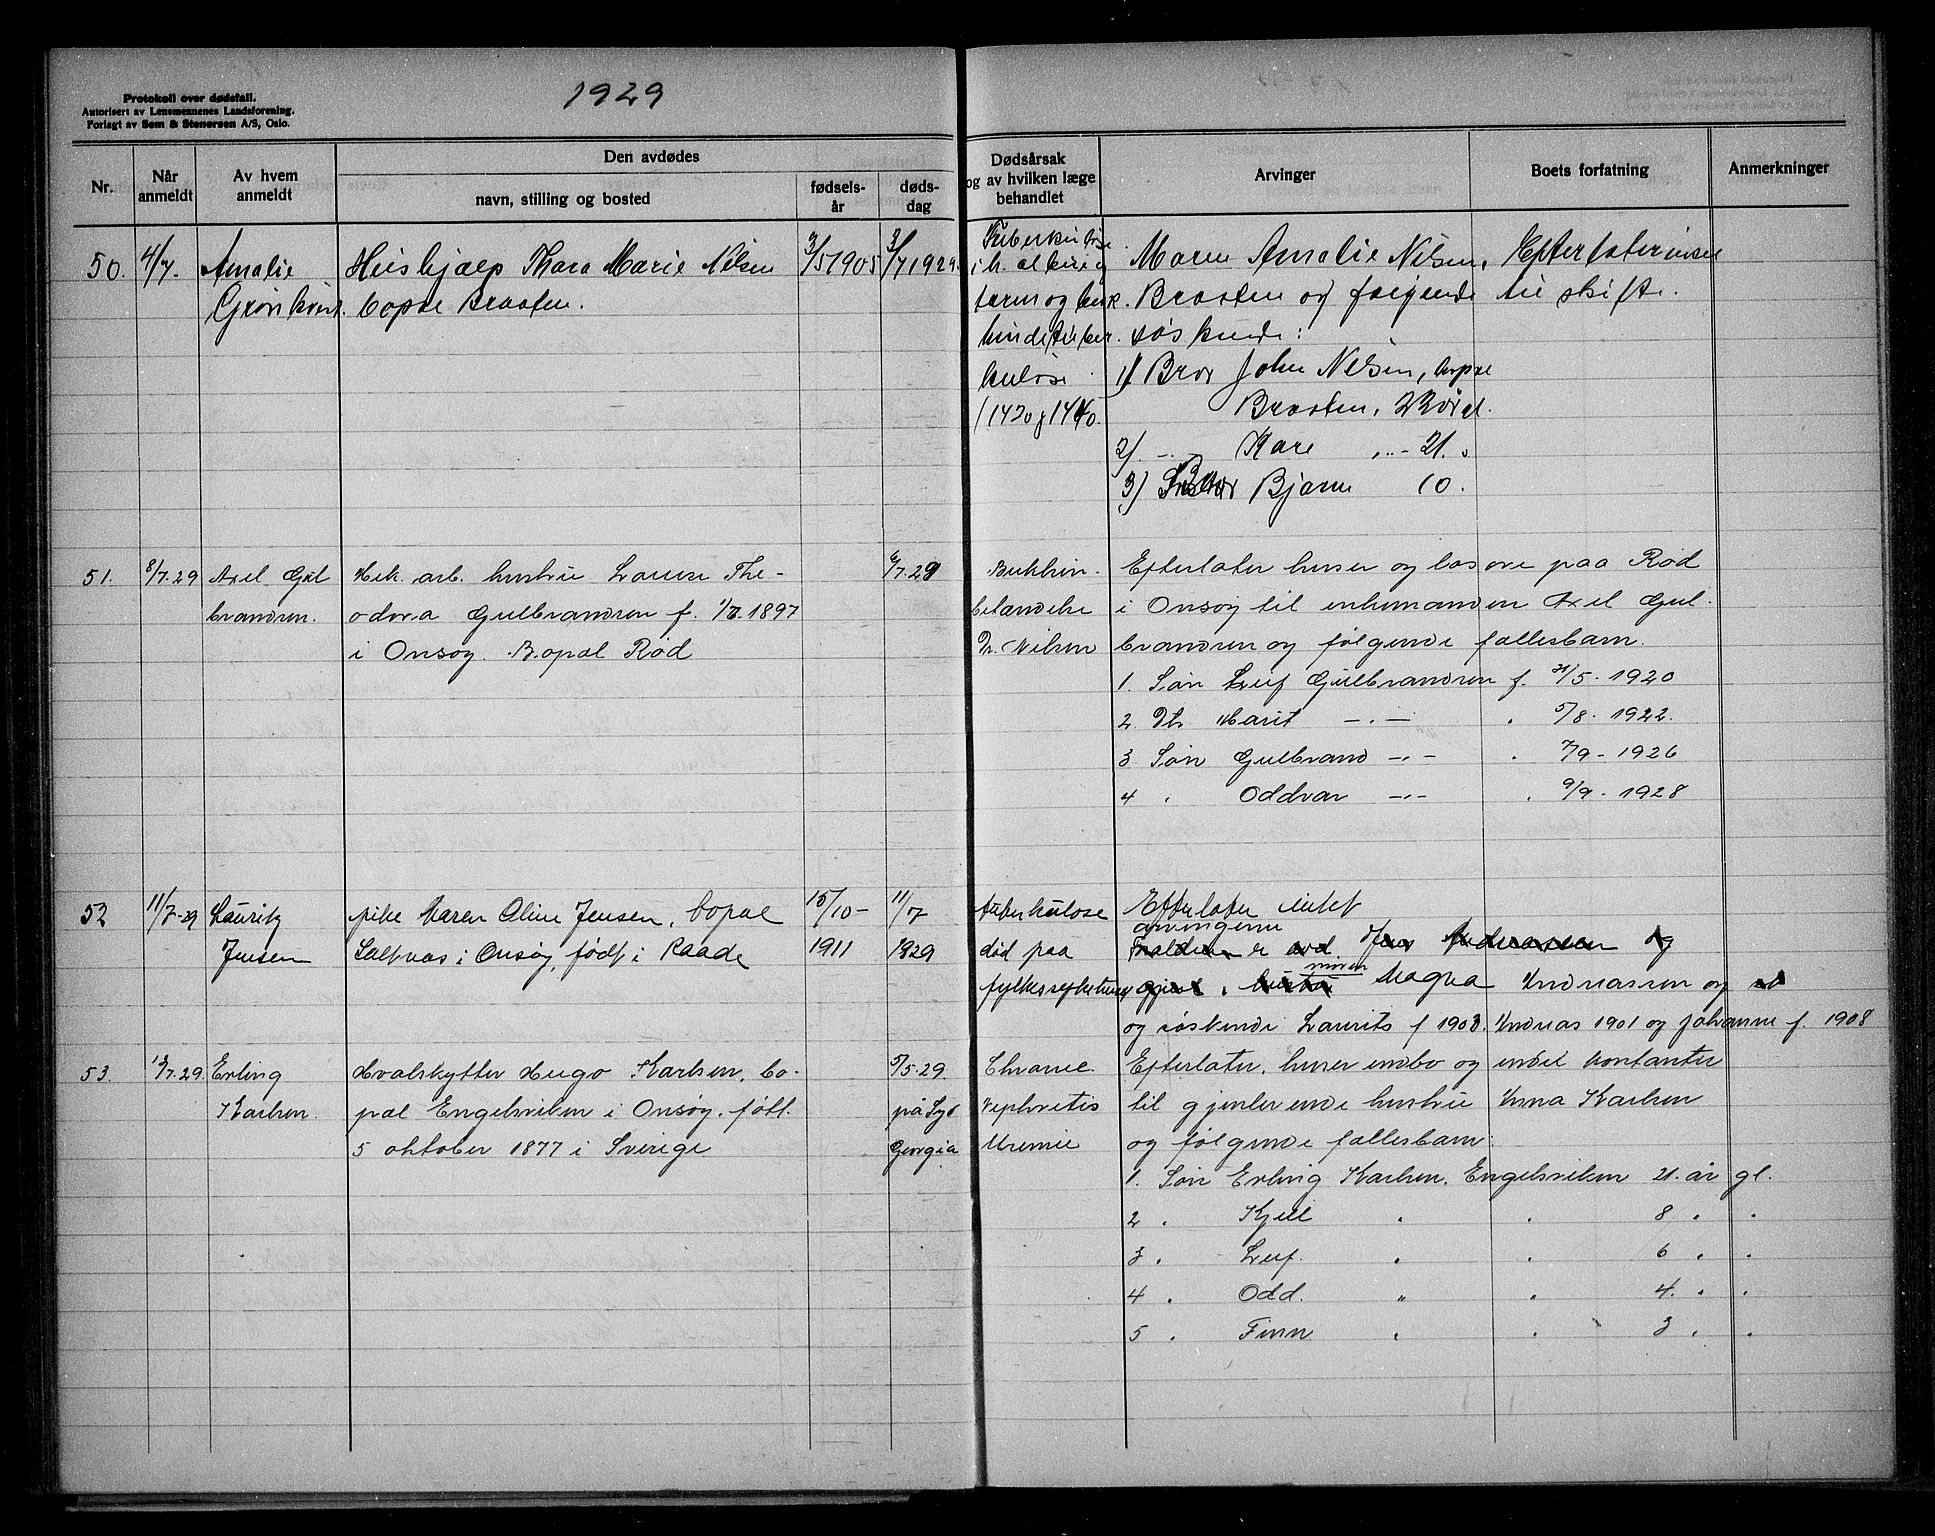 1929
Protokoll over dødsfall.
Autorisert av Lensmennenes Landsforening.
Forlagt av Sem & Stenersen A/S, Oslo.
Nr.
Når anmeldt
Av hvem anmeldt
Den avdødes
navn, stilling og bosted
fødsels-
år
døds-
dag
Dødsårsak
og av hvilken læge
behandlet
Arvinger
Boets forfatning
Anmerkninger
50. 4/7. Amalie Hushjælp Thora Marie Nilsen 3/5 1905 3/7 1929. Tuberkuløse Moren Amalie Nilsen, Efterlater intet
Braaten og følgende til skifte.
bopæl Braaten.
søskende:
kuløse 1) Bror John Nilsen, bopæl
(142 og 144) Braaten, 23 år gl.
2) -.- Kare -..- 21. "
3) Bror Bjarne 10.
51. 8/7.29 Axel Gul Mek. arb. hustru Laura The- 6/7.29 Efterlater huser og løsøre paa Rød
brandsen. odora Gulbrandsen f. 1897 i Onsøy til enkemanden Axel Gul-
i Onsøy. Bopæl Rød Dr. Nilsen brandsen og følgende fællesbarn.
1. Søn Leif Gulbrandsen f. 21/5. 1920
2. Dtr Marit -.- " 5/8. 1922.
3 Søn Gulbrand -.- " 7/9 - 1926
4 " Oddvar -.- " 9/9. 1928
52 11/7-29 Lauritz pike Maren Oline Jensen, bopæl 15/10- 11/7 tuberkulose Efterlater intet
arvingerne
Jensen Saltnes i Onsøy, født i Raade 1911 1929 død paa Forældrene er død. Jens Andreassen og
moren
fylkessykehuset hustru Magna Andreassen og
og søskende Laurits f 1903. Andreas 1901 og Johanne f. 1908
53. 13/7.29. Erling Hvalskytter Hugo Karlsen, bo- 5/5.29. Chronic Efterlater, huser innbo og endel kontanter
Karlsen. pæl Engelsviken i Onsøy, født på Syd Nephretis til gjenlevende hustru Anna Karlsen
5 oktober 1877 i Sverige Georgia Uremie og følgende fællesbarn:
1. Søn Erling Karlsen, Engelsviken 21. år gl.
2 " Kjell " " 8 " "
3 " Leif. " " 6 " "
4 " Odd. " " 4. " "
5 " Finn " " 3 " "